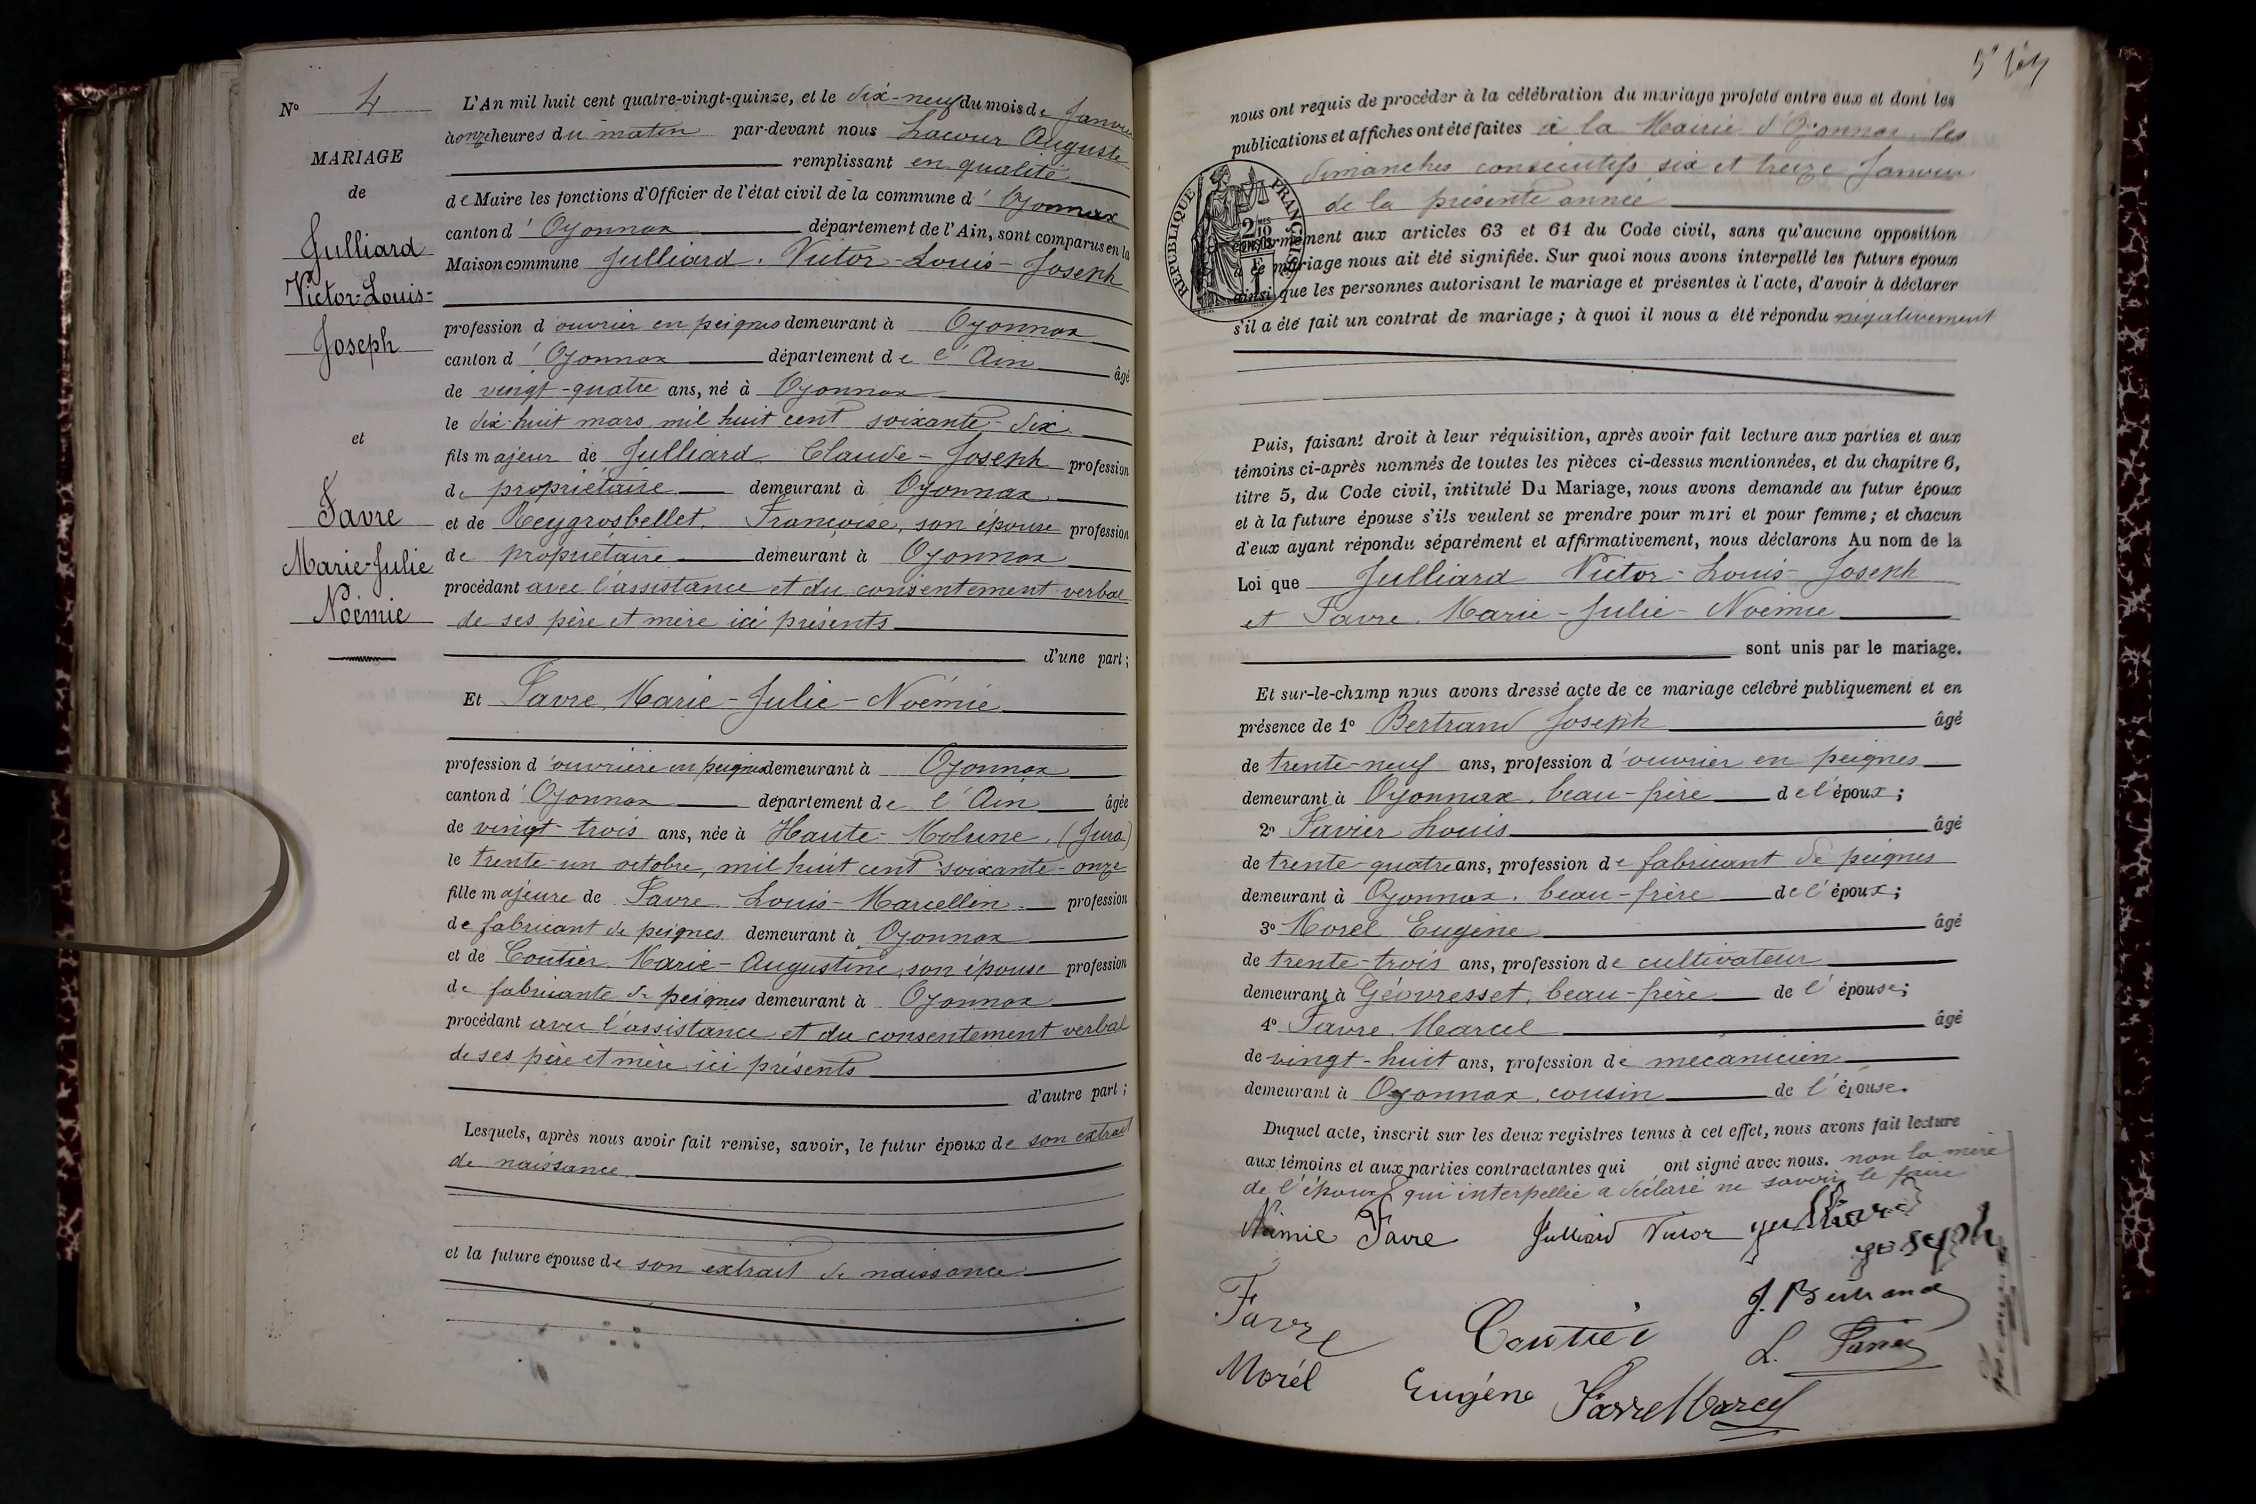 N° 4
MARIAGE
de
Julliard
Victor-Louis-
Joseph
et
Favre
Marie-Julie
Noémie
L'An mil huit cent quatre-vingt-quinze, et le dix-neuf du mois de Janvier
à onze heures du matin par-devant nous Lacour Auguste
remplissant en qualité
de Maire les fonctions d'Officier de l'état civil de la commune d'Oyonnax
canton d'Oyonnax département de l'Ain, sont comparus en la
Maison commune Julliard, Victor-Louis-Joseph
profession d'ouvrier en peignes demeurant à Oyonnax
canton d'Oyonnax département de l'Ain âgé
de vingt-quatre ans, né à Oyonnax
le dix-huit mars mil huit cent soixante-dix
fils majeur de Julliard Claude-Joseph profession
de propriétaire demeurant à Oyonnax
et de Reygrosbellet, Françoise, son épouse profession
de propriétaire demeurant à Oyonnax
procédant avec l'assistance et du consentement verbal
de ses père et mère ici présents
d'une part;
Et Favre, Marie-Julie-Noémie
profession d'ouvrière en peignes demeurant à Oyonnax
canton d'Oyonnax département de l'Ain âgée
de vingt-trois ans, née à Haute-Molune, (Jura)
le trente-un octobre, mil huit cent soixante-onze
fille majeure de Favre Louis-Marcellin profession
de fabricant de peignes demeurant à Oyonnax
et de Coutier, Marie-Augustine, son épouse profession
de fabricante de peignes demeurant à Oyonnax
procédant avec l'assistance et du consentement verbal
de ses père et mère ici présents
d'autre part;
Lesquels, après nous avoir fait remise, savoir, le futur époux de son extrait
de naissance
et la future épouse de son extrait de naissance
nous ont requis de procéder à la célébration du mariage projeté entre eux et dont les
publications et affiches ont été faites à la Mairie d'Oyonnax, les
dimanches consécutifs six et treize Janvier
de la présente année
RÉPUBLIQUE FRANÇAISE
conformément aux articles 63 et 64 du Code civil, sans qu'aucune opposition
à ce mariage nous ait été signifiée. Sur quoi nous avons interpellé les futurs époux
ainsi que les personnes autorisant le mariage et présentes à l'acte, d'avoir à déclarer
s'il a été fait un contrat de mariage; à quoi il nous a été répondu négativement
Puis, faisant droit à leur réquisition, après avoir fait lecture aux parties et aux
témoins ci-après nommés de toutes les pièces ci-dessus mentionnées, et du chapitre 6,
titre 5, du Code civil, intitulé Du Mariage, nous avons demandé au futur époux
et à la future épouse s'ils veulent se prendre pour mari et pour femme; et chacun
d'eux ayant répondu séparément et affirmativement, nous déclarons Au nom de la
Loi que Julliard Victor-Louis-Joseph
et Favre, Marie-Julie-Noémie
sont unis par le mariage.
Et sur-le-champ nous avons dressé acte de ce mariage célébré publiquement et en
présence de 1° Bertrand Joseph âgé
de trente-neuf ans, profession d'ouvrier en peignes
demeurant à Oyonnax, beau-frère de l'époux;
2° Favier Louis âgé
de trente-quatre ans, profession de fabricant de peignes
demeurant à Oyonnax, beau-frère de l'époux;
3° Morel Eugène âgé
de trente-trois ans, profession de cultivateur
demeurant à Géovresset, beau-frère de l'épouse;
4° Favre, Marcel âgé
de vingt-huit ans, profession de mécanicien
demeurant à Oyonnax, cousin de l'épouse.
Duquel acte, inscrit sur les deux registres tenus à cet effet, nous avons fait lecture
aux témoins et aux parties contractantes qui ont signé avec nous. non la mère
de l'époux qui interpellée a déclaré ne savoir le faire
Noémie Favre Julliard Victor Julliard
Joseph
Favre Coutier J. Bertrand
L. Favier
Morel Eugène Favre Marcel